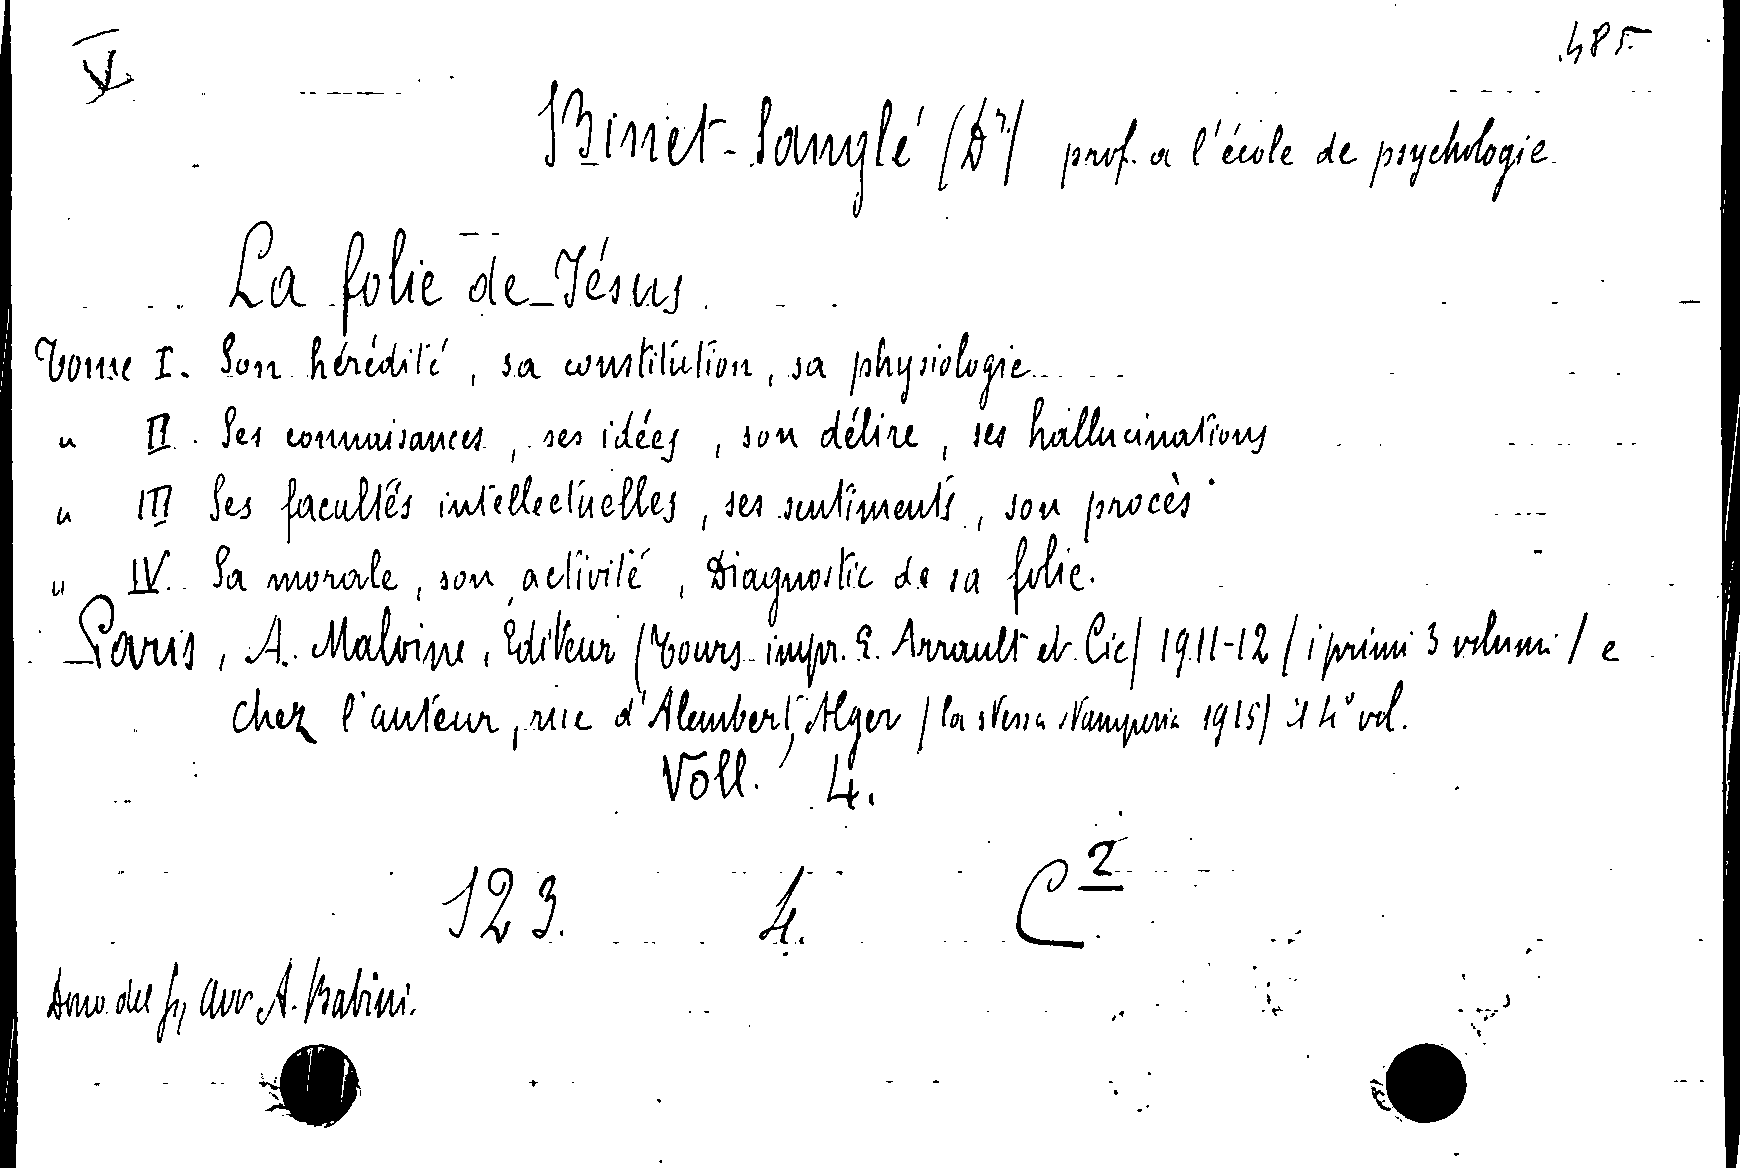 V
485.
Binet-Sanglé (Dr) prof. a l'école de psychologie.
La folie de Jésus
Tome I. Son hérédité, sa constitution, sa physiologie
" II. Ses connaisances, ses idées, son délire, ses hallucinations
" III Ses facultés intellectuelles, ses sentiments, son procès.
" IV. Sa morale, son activité, Diagnostic de sa folie.
Paris, A. Maloine, Editeur (Tours impr. E. Arrault et Cie) 1911-12 (i primi 3 volumi) e
chez l'auteur, rue d'Alembert, Alger (la stessa stamperia 1915) il 4º vol.
Voll. 4.
123. 4. C2
Dono del Avv A. Babini.